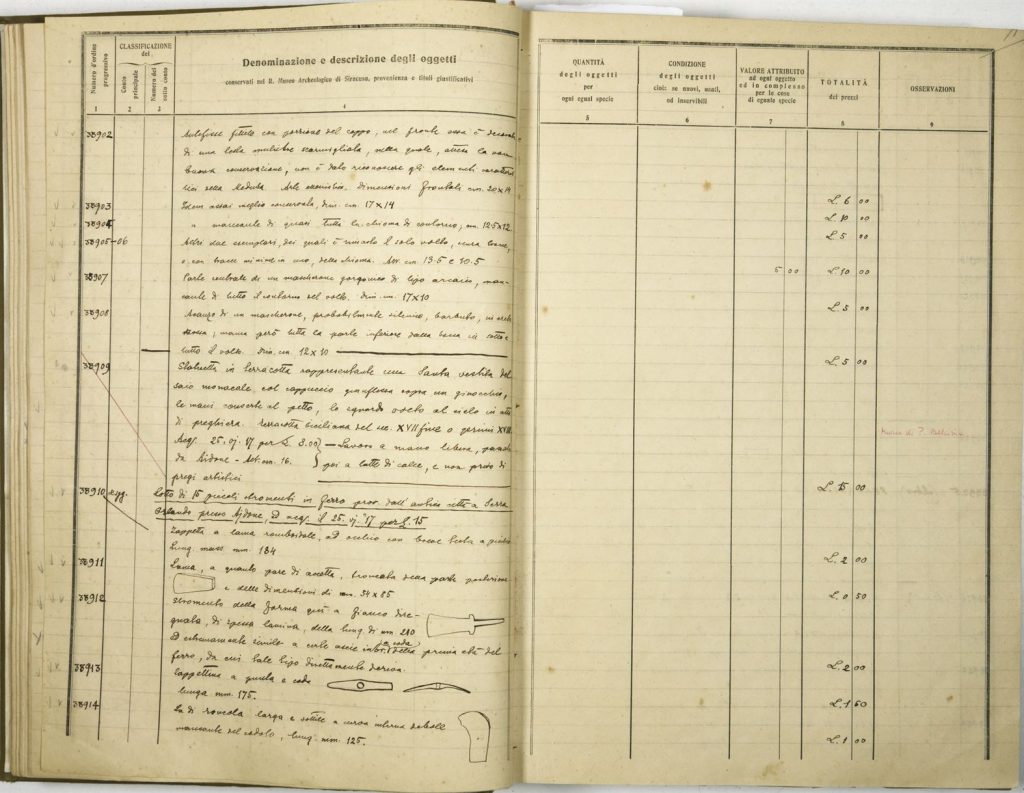 Numero d'ordine progressivo
CLASSIFICAZIONE del
Conto principale
Numero del sotto conto
Denominazione e descrizione degli oggetti
conservati nel R. Museo Archeologico di Siracusa, provenienza e titoli giustificativi
1 2 3 4
38902 Antefisse fittile con porzione del coppo, nel fronte essa è
di una testa muliebre scarmigliata, nella quale, attesa la non
buona conservazione, non è dato riconoscere gli elementi
della Medusa. Arte dimensioni frontali cm. 20 x 19
38903 Idem assai meglio conservata, dim. cm. 17 x 14
38904 " mancante di quasi tutta la chioma di contorno, cm. 12.5 x 12
38905-06 Altri due esemplari, dei quali è rimasto il solo volto,
o con tracce minime in uno, della chioma. Alt. cm. 13.5 e 10.5
38907 Parte centrale di un mascherone gorgonico di tipo arcaico, man-
cante di tutto il contorno del volto. dim. cm. 17 x 10
38908 Avanzo di un mascherone, probabilmente silenico, barbato,
manca però tutta la parte inferiore dalla bocca in sotto e
tutto il volto. Dim. cm. 12 x 10
38909 Statuetta in terracotta rappresentante una Santa vestita del
saio monacale, col cappuccio genuflessa sopra un ginocchio,
le mani conserte al petto, lo sguardo volto al cielo in atto
di preghiera. Terracotta siciliana del sec. XVII fine o primi XVIII.
Acq. 25. vj. 17 per £. 5.00 – Lavoro a mano libera,
da Aidone – Alt. cm. 16. poi a latte di calce, e non privo di
pregi artistici
38910 Lotto di 15 piccoli strumenti in ferro prov. dall'antica città a Serra
Orlando presso Ajdone, ed acq. il 25. vj. '17 per £. 15
Zappetta a lama romboidale, ad occhio con
lung. mass. mm. 134
38911 Lama, a quanto pare di accetta, troncata nella parte posteriore
e delle dimensioni di mm. 54 x 85
38912 Strumento della forma qui a fianco dise-
gnata, di spessa lamina, della lung. di mm 210
Ed estremamente simile a certe ascie in br. a coda della prima età del
ferro, da cui tale tipo direttamente deriva.
38913 Zappettina a punta e coda
lunga mm. 175.
38914 di roncola larga e sottile a curva interna debole
mancante del codolo, lung. mm. 125.
QUANTITÀ
degli oggetti
per
ogni egual specie
CONDIZIONE
degli oggetti
cioè: se nuovi, usati,
od inservibili
VALORE ATTRIBUITO
ad ogni oggetto
ed in complesso
per le cose
di eguale specie
TOTALITÀ
dei prezzi
OSSERVAZIONI
5 6 7 8 9
£. 6 00
£. 10 00
£. 5 00
5 00 £. 10 00
£. 5 00
£. 5 00
Museo di P.
£. 15 00
£. 2 00
£. 0 50
£. 2 00
£. 1 50
£. 1 00